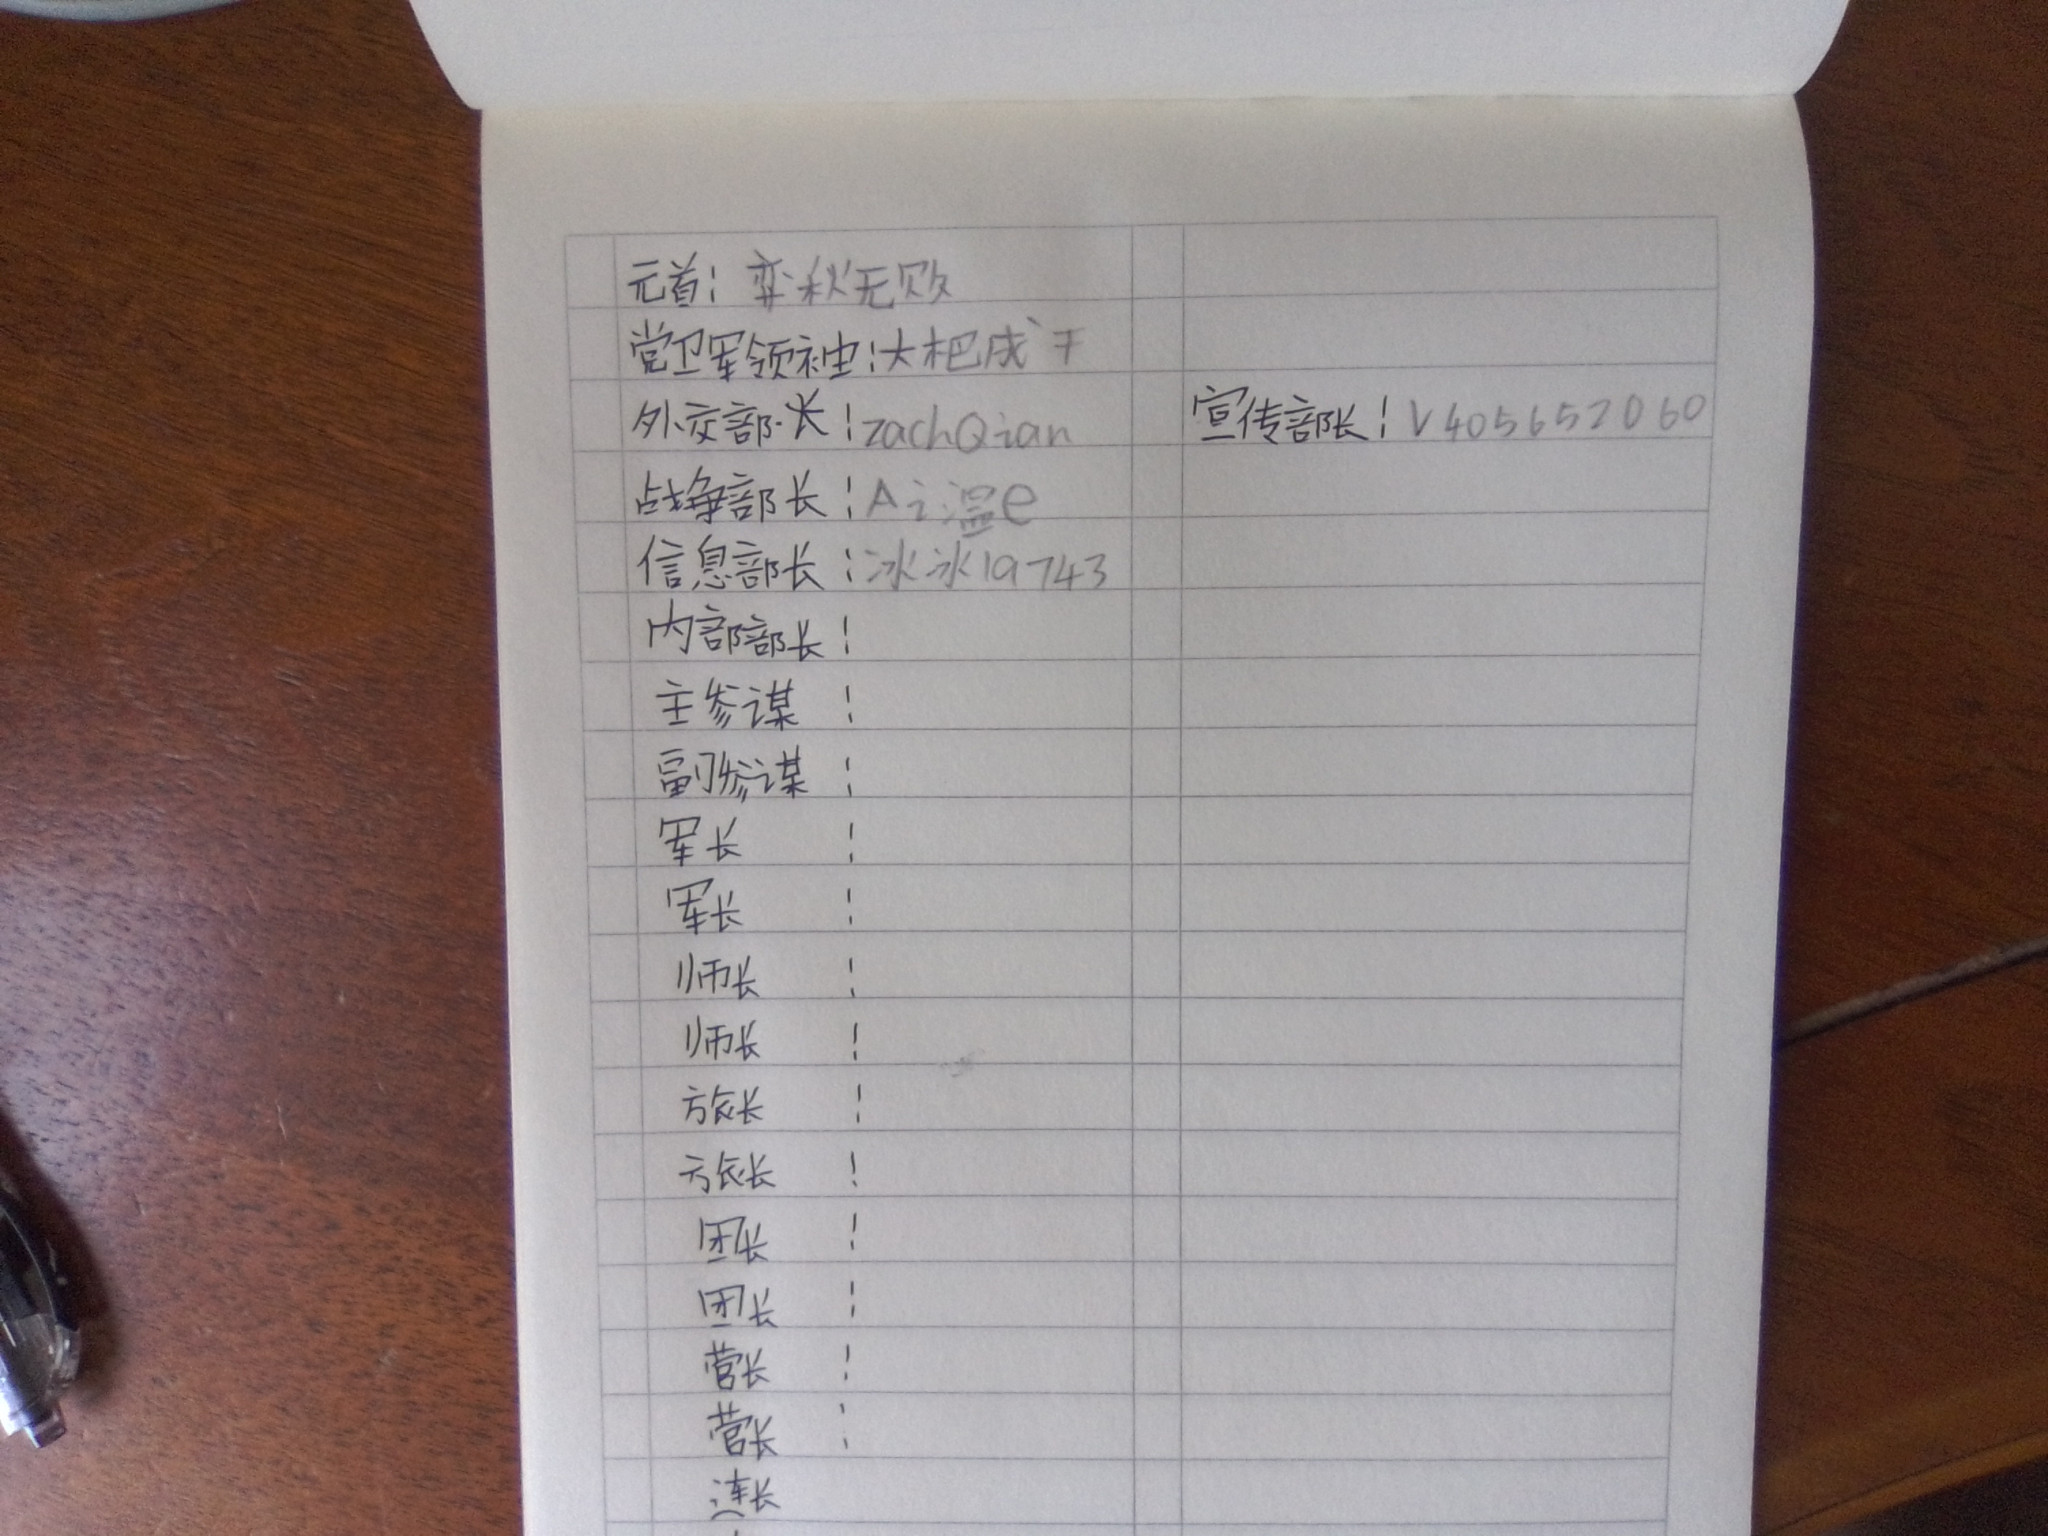 元首：弈秋无败
党卫军领袖：大杷成干
外交部长：zachQian 宣传部长：V405652060
战争部长：A之温e
信息部长：冰冰19743
内部部长：
主参谋：
副参谋：
军长：
军长：
师长：
师长：
旅长：
旅长：
团长：
团长：
营长：
营长：
连长